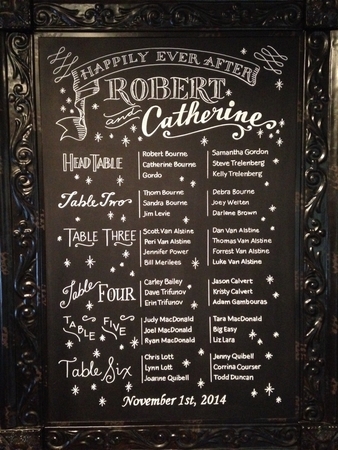 HAPPILY EVER AFTER
ROBERT
and Catherine
HEAD TABLE
Robert Bourne
Catherine Bourne
Gordo
Samantha Gordon
Steve Trelenberg
Kelly Trelenberg
Table Two
Thorn Bourne
Sandra Bourne
Jim Levie
Debra Bourne
Joey Welten
Darlene Brown
TABLE THREE
Scott Van Alstine
Peri Van Alstine
Jennifer Power
Bill Merilees
Dan Van Alstine
Thomas Van Alstine
Forrest Van Alstine
Luke Van Alstine
Table FOUR
Carley Bailey
Dave Trifunov
Erin Trifunov
Jason Calvert
Kristy Calvert
Adam Gambouras
TABLE FIVE
Judy MacDonald
Joel MacDonald
Ryan MacDonald
Tara MacDonald
Big Easy
Liz Lara
TABLE Six
Chris Lott
Lynn Lott
Joanne Quibell
Jenny Quibell
Corrina Courser
Todd Duncan
November 1st, 2014